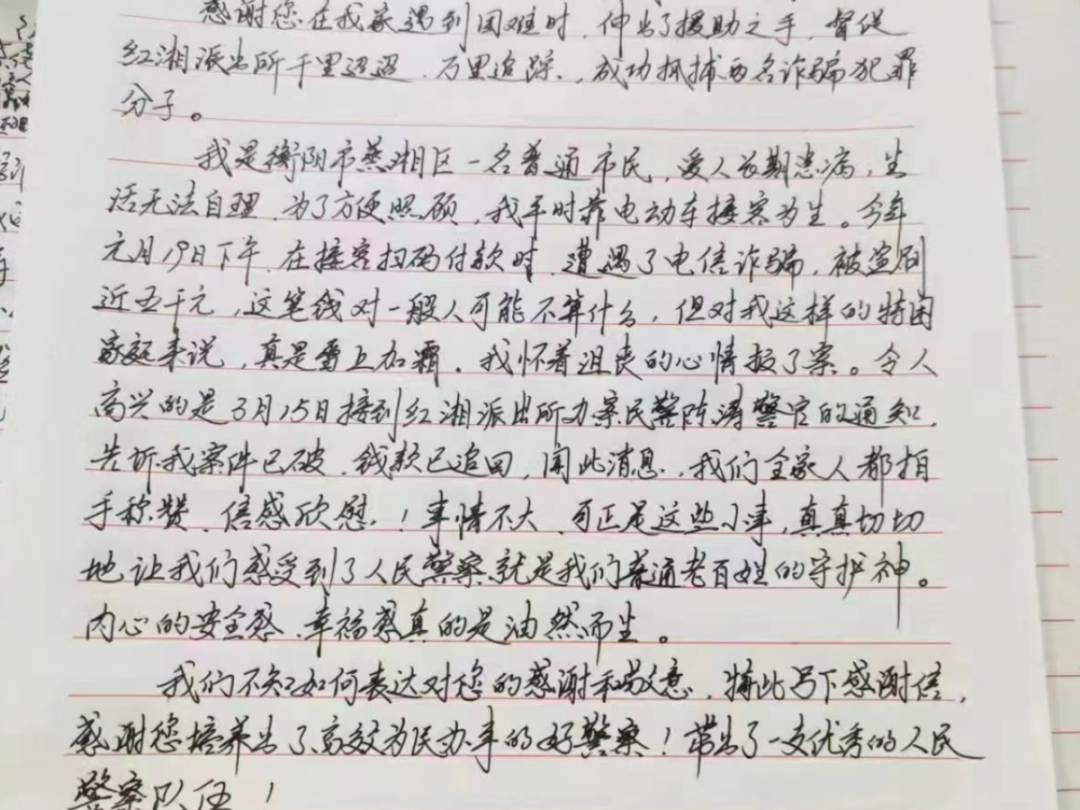 感谢您在我家遇到困难时，伸出了援助之手，督促
红湘派出所千里迢迢、万里追踪，成功抓捕两名诈骗犯罪
分子。
我是衡阳市蒸湘区一名普通市民，爱人长期患病，生
活无法自理，为了方便照顾，我平时靠电动车接客为生。今年
元月19日下午，在接客扫码付款时，遭遇了电信诈骗，被盗刷
近五千元，这笔钱对一般人可能不算什么，但对我这样的特困
家庭来说，真是雪上加霜，我怀着沮丧的心情报了案。令人
高兴的是3月15日接到红湘派出所办案民警陈涛警官的通知，
告诉我案件已破，钱款已追回，闻此消息，我们全家人都拍
手称赞、倍感欣慰！事情不大，可正是这些小事，真真切切
地让我们感受到了人民警察就是我们普通老百姓的守护神。
内心的安全感、幸福感真的是油然而生。
我们不知如何表达对您的感谢和敬意，特此写下感谢信，
感谢您培养出了高效为民办事的好警察！带出了一支优秀的人民
警察队伍！